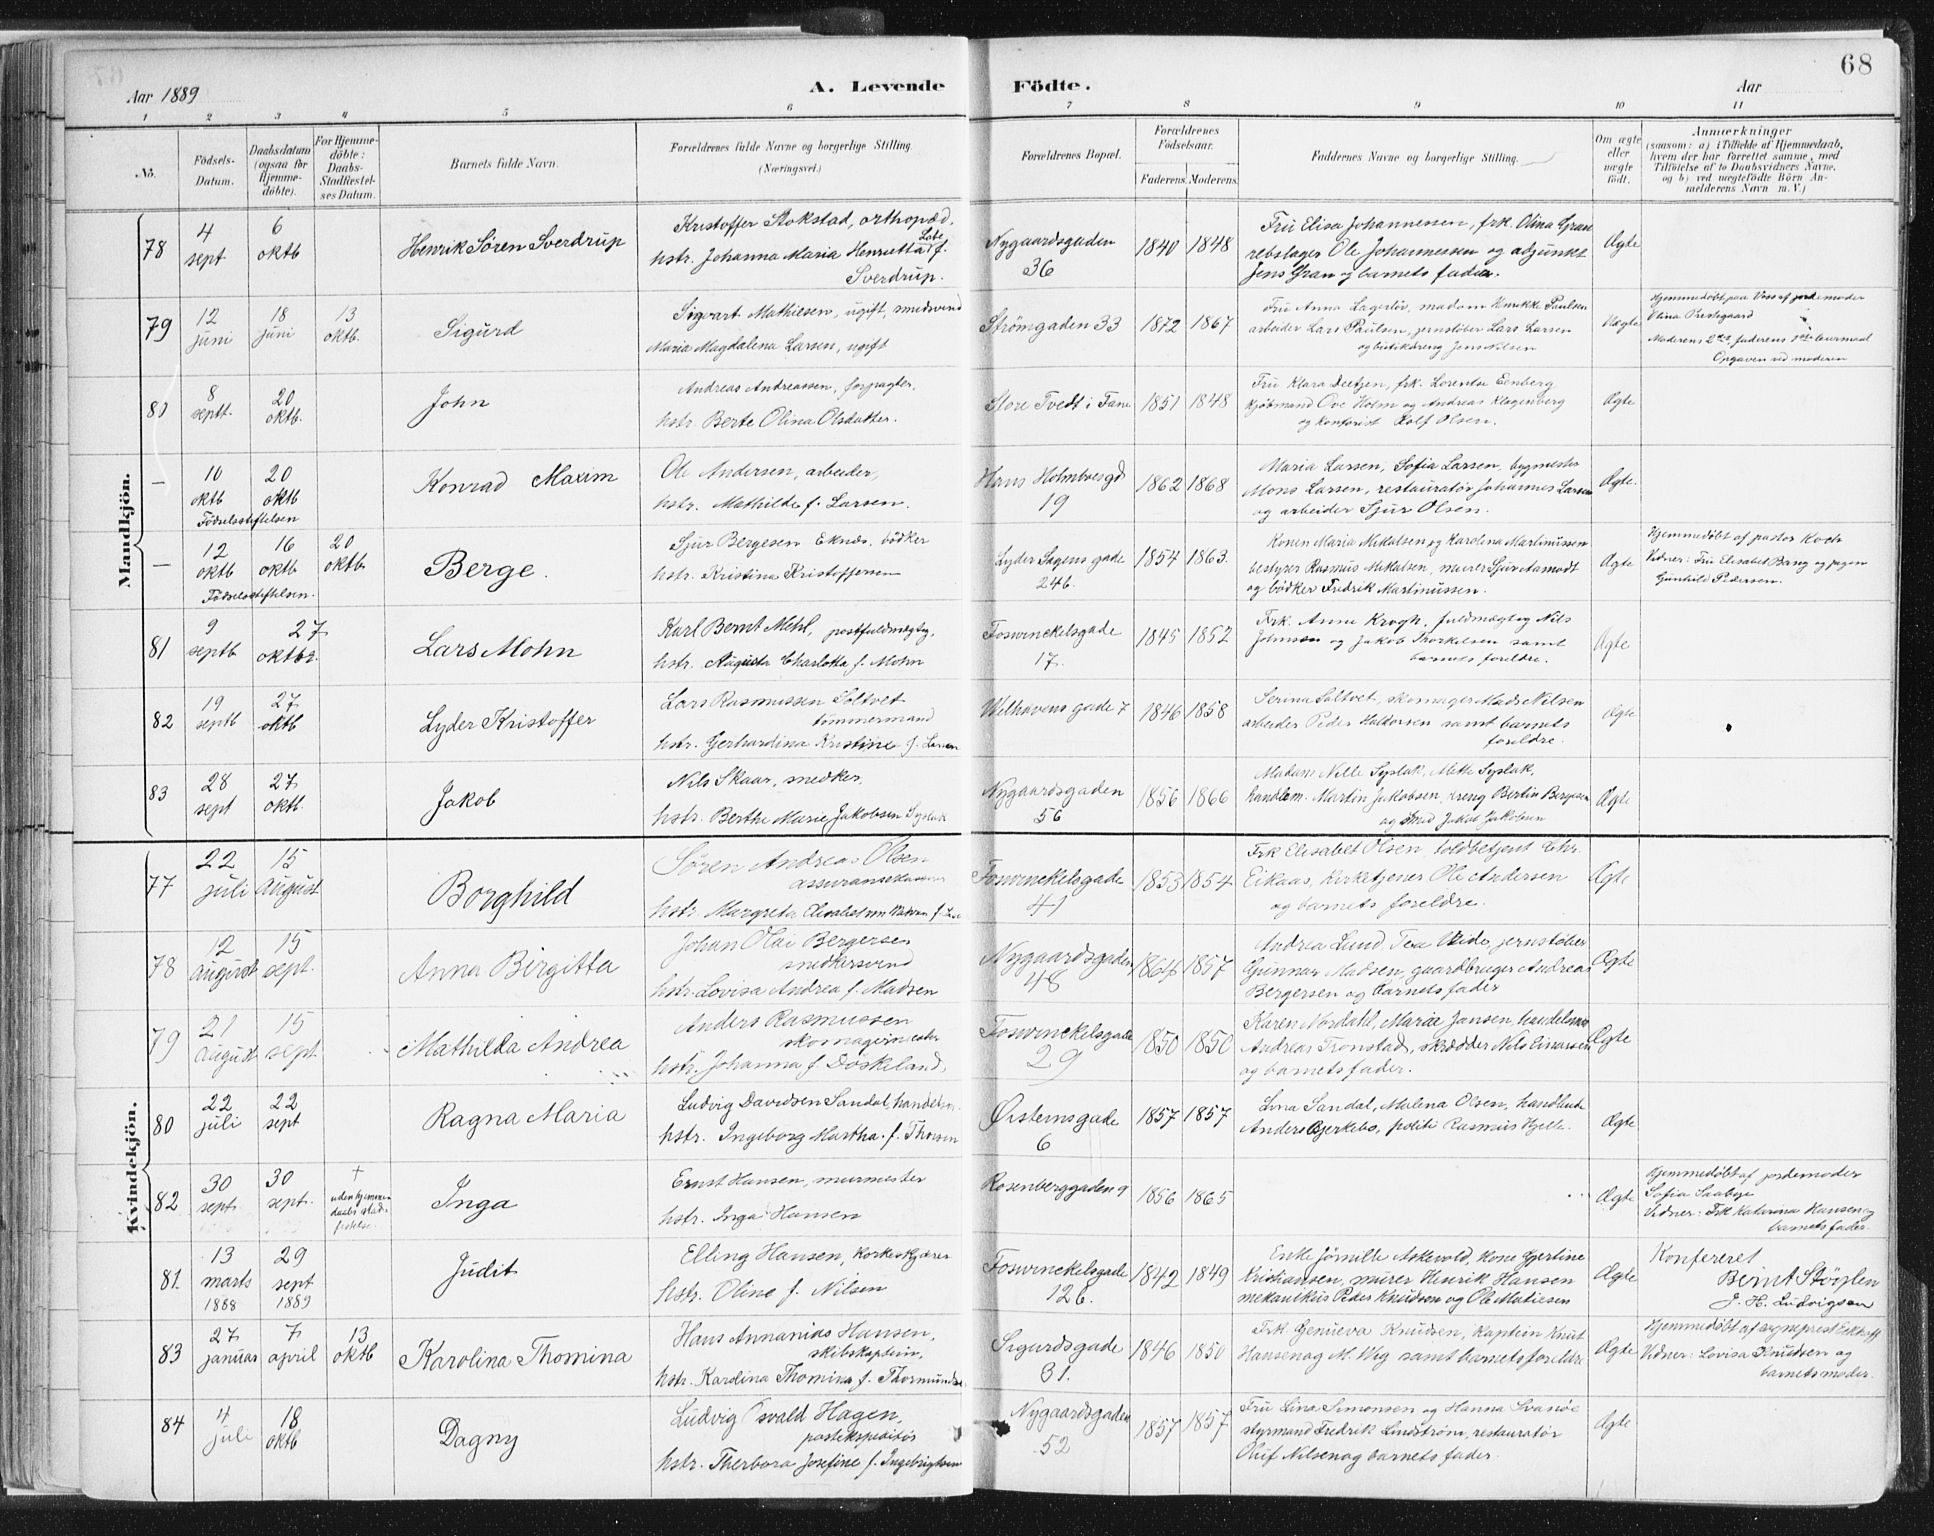 68
Aar 1889
A. Levende Födte.
Aar
1 2 3 4 5 6 7 8 9 10 11
No.
Födsels-Datum.
Daabsdatum (ogsaa for Hjemme-döbte).
For Hjemme-döbte: Daabs-Stadfæstel-ses Datum.
Barnets fulde Navn.
Forældrenes fulde Navne og borgerlige Stilling. (Næringsvei.)
Forældrenes Bopæl.
Forældrenes Födselsaar.
Faderens. Moderens.
Faddernes Navne og borgerlige Stilling.
Om ægte eller uægte födt.
Anmærkninger
(saasom: a) i Tilfælde af Hjemmedaab, hvem der har forrettet samme, med Tilföielse af to Daabsvidners Navne, og b) ved uægtefödte Börn An-melderens Navn m. V.)
Mandkjön.
78 4 sept 6 oktb Henrik Sören Sverdrup
Kristoffer Stokstad, orthopæd.
hstr. Johanna Maria Henrietta f. Sverdrup.
Nygaardsgaden 36 1840 1848
Fru Elisa Johannessen, frk. Olina Gran
rebslager Ole Johannessen og adjunkt
Jens Gran og barnets fader.
Ægte
79 12 juni 18 juni 13 oktb. Sigurd
Sigvart Mathiesen, ugift, smedsvend
Maria Magdalena Larsen, ugift
Strömgaden 33 1872 1867
Fru Anna Lagerlöv, madam Paulsen
arbeider Lars Paulsen, jernstöber Lars Larsen
og butikdreng Jens Nilsen
Uægte
Hjemmedöbt paa Voss af jordemoder
Olina Prestegaard
Moderens 2det, faderens 1ste leiermaal
Opgaven ved moderen
80 8 septb. 20 oktb. John
Andreas Andreassen, forpagter,
hstr. Berte Olina Olsdatter.
Store Tvedt i Fane 1851 1848
Fru Klara Deetjen, frk. Lorentse Eenberg
kjöbmand Ove Holm og Andreas Klagenberg
og kontorist Rolf Olsen.
Ægte
— 10 oktb 20 oktb Konrad Maxim
Födselsstiftelsen
Ole Andersen, arbeider,
hstr. Mathilde f. Larsen.
Hans Holmboesgd 19 1862 1868
Maria Larsen, Sofia Larsen, bygmester
Mons Larsen, restauratör Johannes Larsen
og arbeider Sjur Olsen.
Ægte.
— 12 oktb 16 oktb 20 oktb. Berge.
Födselsstiftelsen.
Sjur Bergesen Eknæs, bödker
hstr. Kristina Kristoffersen
Lyder Sagens gade 24b. 1854 1863.
Konen Maria Mikalsen og Karolina Martinussen
bestyrer Rasmus Mikalsen, murer Sjur Aamodt
og bödker Fredrik Martinussen.
Ægte
Hjemmedöbt af pastor Koch
Vidner: Fru Elisabet Bang og pigen
Gunhild Pedersen.
81 9 septb 27 oktbr. Lars Mohn
Karl Bernt Mehl, postfuldmægtg,
hstr. Augusta Charlotta f. Mohn
Foswinckelsgade 17. 1845 1852
Frk. Anna Krogh, fuldmægtig Nils
Johnsen og Jakob Thorkelsen samt
barnets foreldre.
Ægte
82 19 septb 27 oktb Lyder Kristoffer
Lars Rasmussen Soltvet
tömmermand
hstr. Gerhardina Kristine f. Larsen
Welhavens gade 7 1846 1858
Serina Soltvet, skomager Mads Nilsen
arbeider Peder Haldorsen samt barnets
foreldre.
Ægte
83 28 sept 27 oktb. Jakob
Nils Skaar, snedker,
hstr. Berthe Marie Jakobsen Syslak
Nygaardsgaden 56 1856 1866
Madam Nille Syslak, Mette Syslak,
handlem. Martin Jakobsen, dreng Bertin Bergesen
og smed Jakob Jakobsen
Ægte
Kvindekjön.
77 22 juli 15 August Borghild
Sören Andreas Olsen
hstr. Margreta
Foswinckelsgade 41 1853 1854
Frk Elisabet Olsen, toldbetjent Chr.
Eikaas, kirketjener Ole Andersen
og barnets foreldre.
Ægte
78 12 August 15 sept. Anna Birgitta
Johan Olai Bergersen
snedkersvend
hstr. Lovisa Andrea f. Madsen
Nygaardsgaden 48 1864 1857
Andrea Lund, Tea Vide, jernstöber
Gunnar Madsen, gaardbruger Andreas
Bergersen og barnets fader
Ægte
79 21 August 15 sept. Mathilda Andrea
Anders Rasmussen
skomagermester
hstr. Johanna f. Döskeland.
Foswinckelsgade 29 1850 1850
Karen Nordahl, Marie Jansen, handelsm.
Andreas Tronstad, skrædder Nils Einarsen
og barnets fader.
Ægte
80 22 juli 22 sept Ragna Maria
Ludvig Davidsen Sandal, handelsm.
hstr. Ingeborg Martha f. Thorsen
Örstensgade 6 1857 1857
Lina Sandal, Malena Olsen, handlende
Anders Bjerkebo, politi Rasmus Hjelle.
Ægte
82 30 sept. 30 sept. † uden hjemmedaabs stadfestelse. Inga
Ernst Hansen, murmester
hstr. Inga Hansen
Rosenberggaden 9 1856 1865
Ægte
Hjemmedöbt af jordemoder
Sofia Saabye
Vidner: Frk Katarina Hansen og
barnets fader.
81. 13 marts 1888 29 sept 1889 Judit
Elling Hansen, korkeskjærer
hstr. Oline f. Nilsen
Foswinckelsgade 12b. 1842 1849
Enke Jörnille Askevold, kone Gjertine
Kristiansen, murer Henrik Hansen
mekanikus Peder Knudsen og Ole Matiesen
Ægte
Konfereret
Bernt Stöylen
J. H. Ludvigsen
83 27 januar 7 april 13 oktb Karolina Thomina
Hans Annanias Hansen,
skibskaptein,
hstr. Karolina Thomina f. Thormundsen
Sigurdsgade 31. 1846 1850
Frk. Genueva Knudsen, kaptein Knut
Hansen og M. Wig samt barnets foreldre
Ægte
Hjemmedöbt af sogneprest
Vidner: Lovisa Knudsen og
barnets moder.
84 4 juli 18 oktb Dagny
Ludvig Osvald Hagen,
postekspeditör
hstr. Therbora Josefine f. Ingebrigtsen
Nygaardsgaden 52 1857 1857
Fru Lina Simonsen og Hanna Svanöe
styrmand Fredrik Lindström, restauratör
Oluf Nilsen og barnets fader.
Ægte